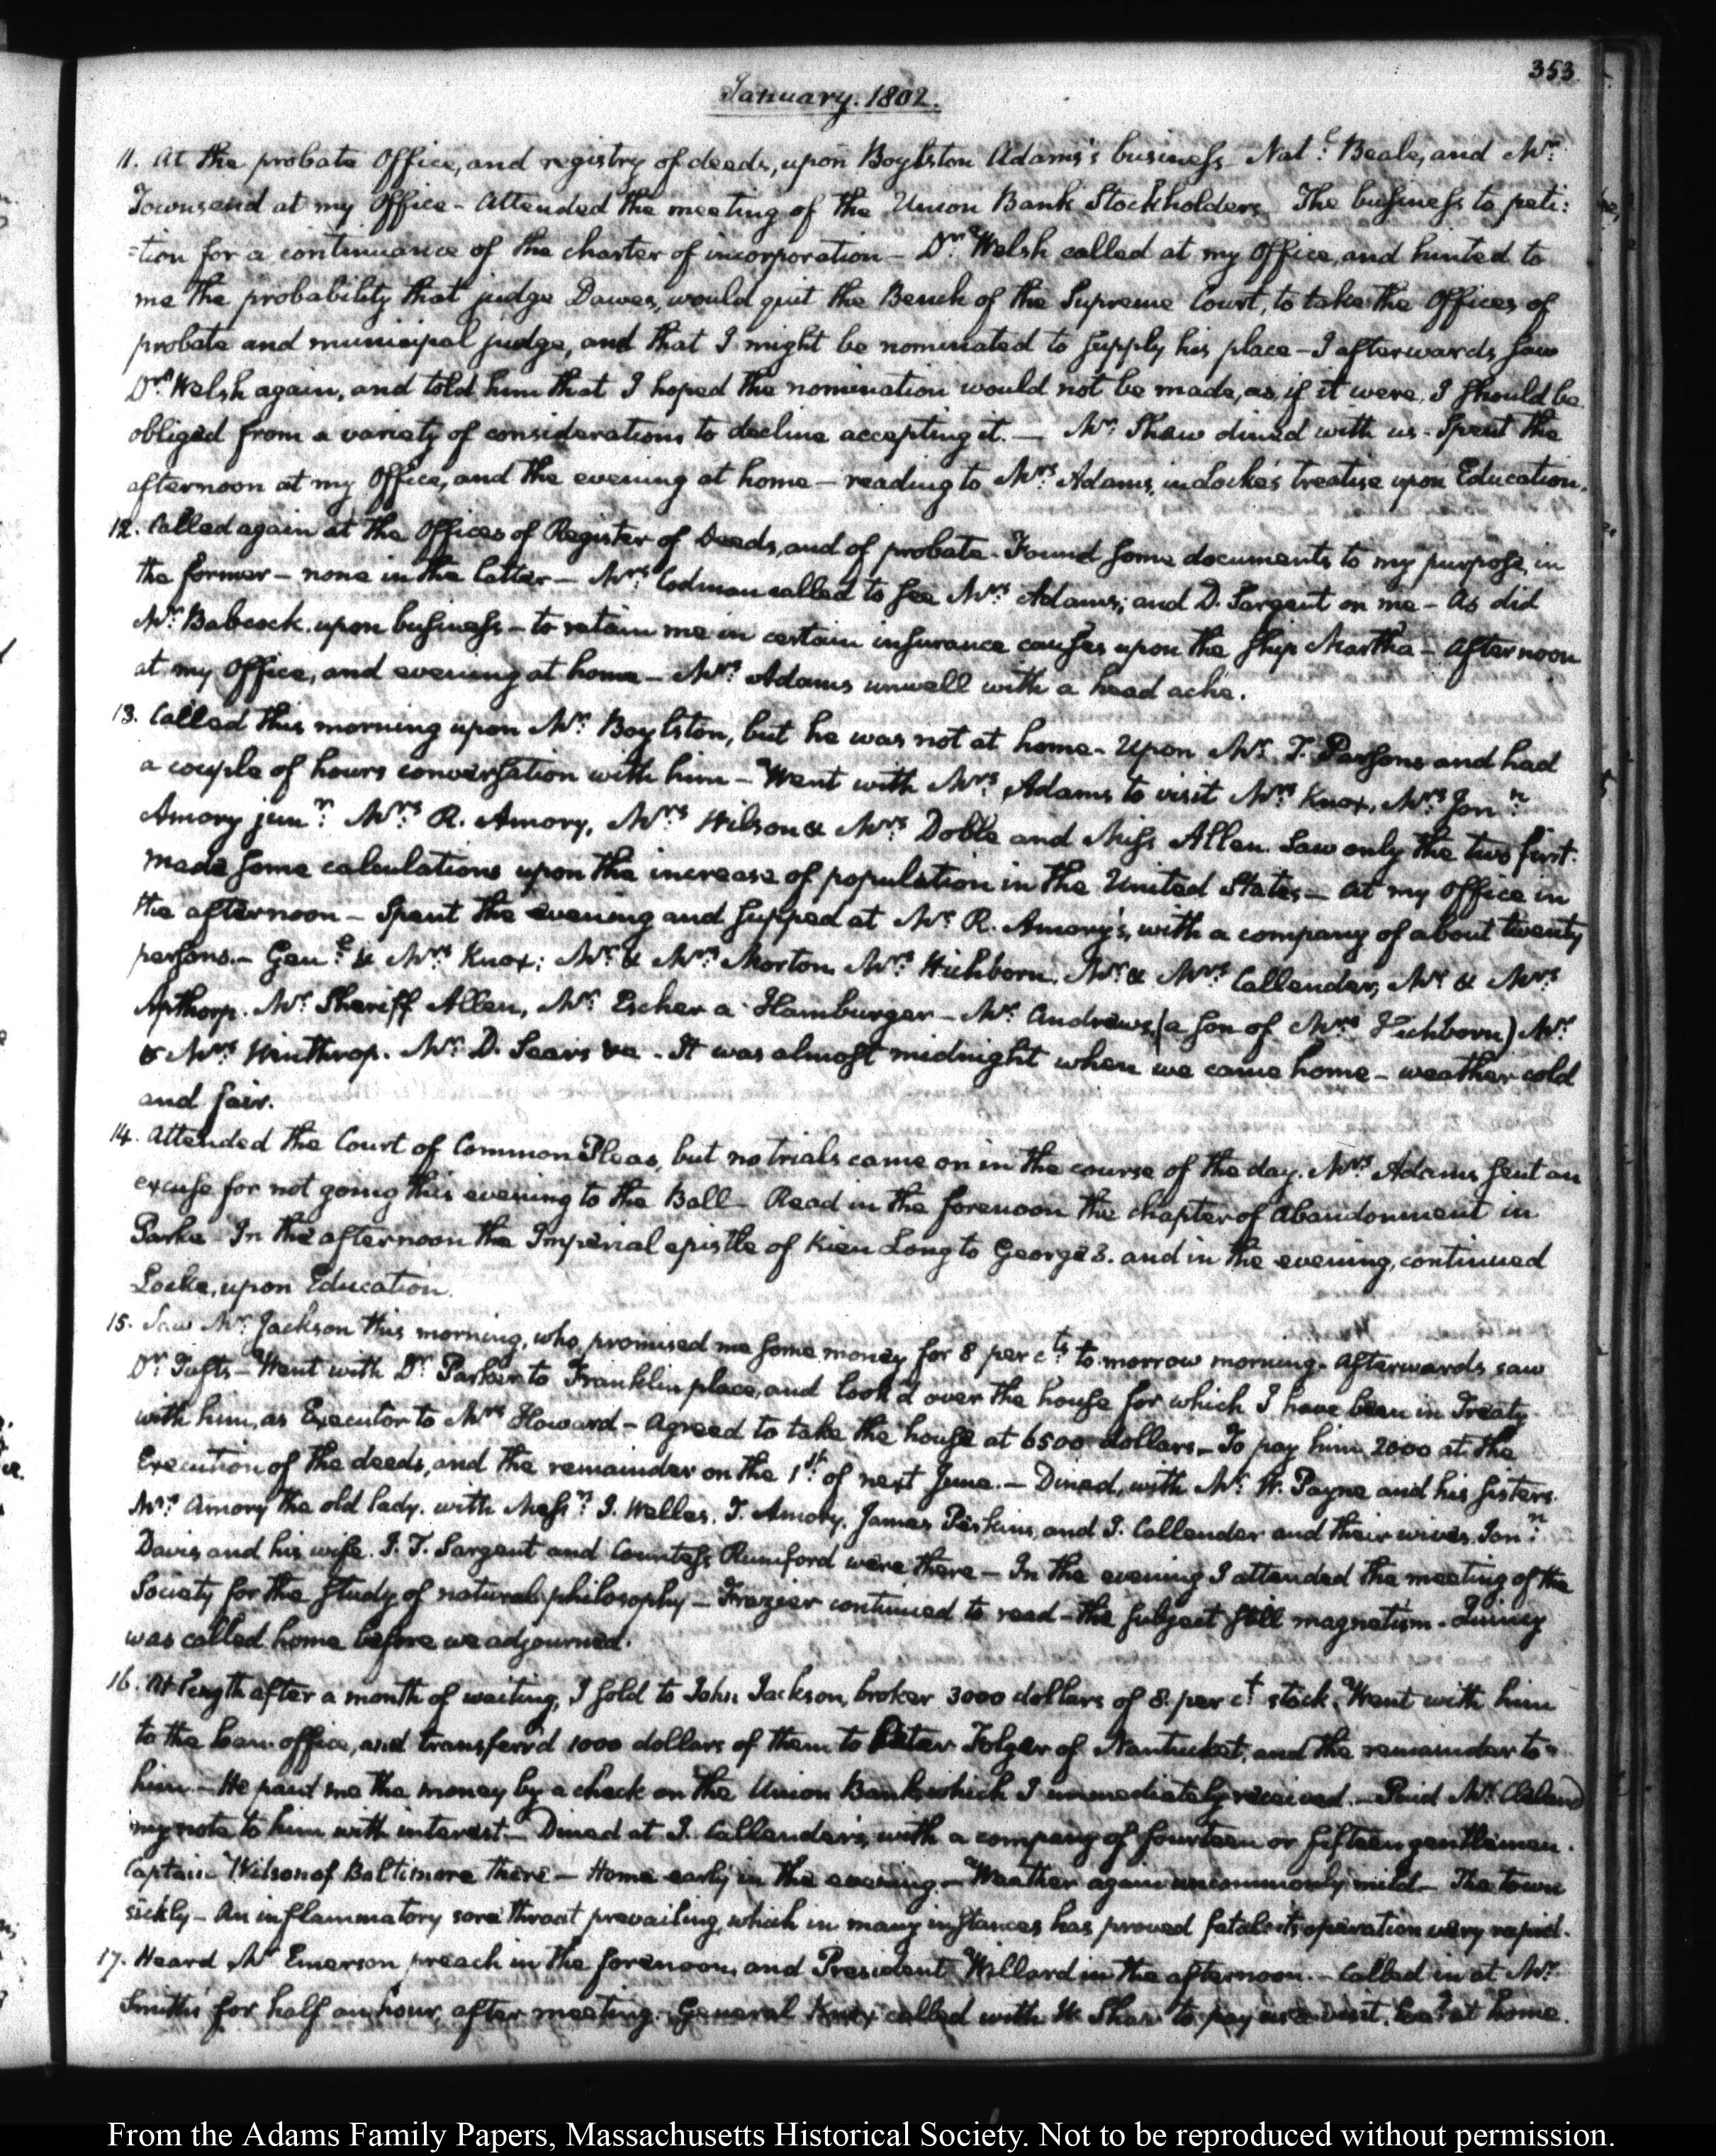 353
January. 1802.
11. At the probate Office, and registry of deeds, upon Boylston Adams's business. Nat:l Beale, and Mr:
Townsend at my Office - Attended the meeting of the Union Bank Stockholders. The business to peti:
=tion for a continuance of the charter of incorporation - Dr: Welsh called at my Office, and hinted to
me the probability that judge Dawes, would quit the Bench of the Supreme Court, to take the Offices of
probate and municipal judge, and that I might be nominated to supply his place - I afterwards saw
Dr: Welsh again, and told him that I hoped the nomination would not be made, as, if it were, I should be
obliged from a variety of considerations to decline accepting it. — Mr: Shaw dined with us - Spent the
afternoon at my Office, and the evening at home - reading to Mrs: Adams, in Locke's treatise upon Education.
12. Called again at the Offices of Register of Deeds, and of probate. Found some documents to my purpose, in
the former - none in the latter - Mrs: Codman called to see Mrs: Adams; and D. Sargent on me - As did
Mr: Babcock upon business - to retain me in certain insurance causes upon the ship Martha - Afternoon
at my Office, and evening at home - Mrs: Adams unwell with a head ache.
13. Called this morning upon Mr: Boylston, but he was not at home - Upon Mr: T. Parsons and had
a couple of hours conversation with him - Went with Mrs: Adams to visit Mrs: Knox, Mrs: Jon:n
Amory jun:r Mrs: R. Amory, Mrs: Wilson & Mrs: Doble and Miss Allen. Saw only the two first.
Made some calculations upon the increase of population in the United States - At my Office in
the afternoon - Spent the evening and supped at Mr: R. Amory's, with a company of about twenty
persons. - Gen:l & Mrs: Knox; Mr: & Mrs: Morton. Mrs: Hichborn. Mr: & Mrs: Callender, Mr: & Mrs:
Apthorp. Mr: Sheriff Allen, Mr: Escher a Hamburger - Mr: Andrews (a son of Mrs: Hichborn) Mr:
& Mrs: Winthrop. Mr: D. Sears &c - It was almost midnight when we came home - weather cold
and fair.
14. Attended the Court of Common Pleas, but no trials came on in the course of the day. Mrs: Adams sent an
excuse for not going this evening to the Ball - Read in the forenoon the chapter of Abandonment in
Parke - In the afternoon the Imperial epistle of Kien Long to George 3. and in the evening, continued
Locke, upon Education.
15. Saw Mr: Jackson this morning, who promised me some money for 8 per cts: to morrow morning. Afterwards saw
Dr: Tufts - Went with Dr: Parker to Franklin place, and look'd over the house for which I have been in Treaty
with him, as Executor to Mrs: Howard - Agreed to take the house at 6500 dollars - To pay him 2000 at the
Execution of the deeds, and the remainder on the 1st: of next June. - Dined, with Mr: W. Payne and his sisters.
Mrs: Amory the old lady. with Mess:rs J. Welles, T. Amory, James Perkins, and J. Callender and their wives. Jon:n
Davis and his wife. I. T. Sargent and Countess Rumford were there - In the evening I attended the meeting of the
Society for the study of natural philosophy - Frazier continued to read - the subject still magnetism - Quincy
was called home before we adjourned.
16. At length after a month of waiting, I sold to John Jackson, broker 3000 dollars of 8. per ct: stock. Went with him
to the loan office, and transferr'd 1000 dollars of them to Peter Folger of Nantucket, and the remainder to
him - He paid me the money by a check on the Union Bank, which I immediately received. - Paid Mr: Cleland
my note to him with interest - Dined at J. Callender's, with a company of fourteen or fifteen gentlemen.
Captain Wilson of Baltimore there - Home early in the evening - Weather again uncommonly mild - The town
sickly - An inflammatory sore throat prevailing, which in many instances has proved fatal - its operation very rapid.
17. Heard Mr: Emerson preach in the forenoon, and President Willard in the afternoon. - Called in at Mr:
Smith's for half an hour, after meeting. General Knox called with W. Shaw to pay us a visit. Eve:g at home.
From the Adams Family Papers, Massachusetts Historical Society. Not to be reproduced without permission.